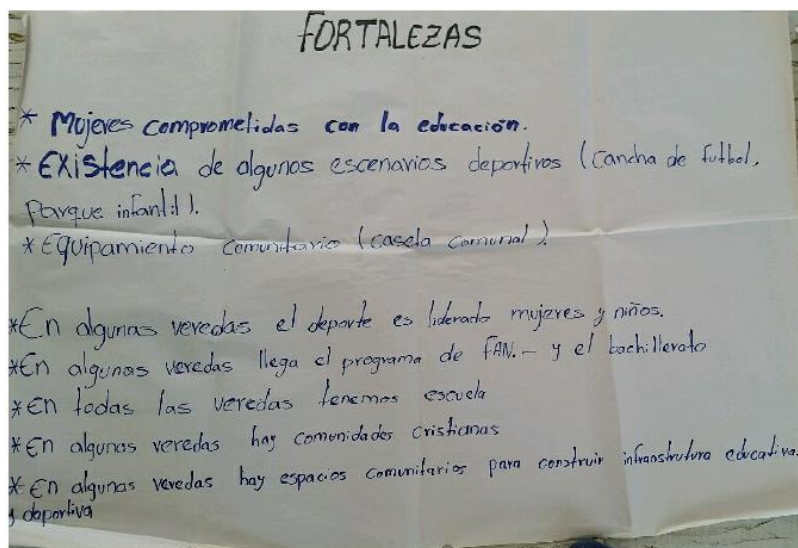 FORTALEZAS
* Mujeres comprometidas con la educación.
* Existencia de algunos escenarios deportivos (cancha de futbol,
Parque infantil).
* Equipamiento comunitario (caseta comunal).
*En algunas veredas el deporte es liderado mujeres y niños.
*En algunas veredas llega el programa de FAN.- y el bachillerato
*En todas las veredas tenemos escuela
*En algunas veredas hay comunidades cristianas
*En algunas veredas hay espacios comunitarios para construir infranstrutura educativa
y deportiva